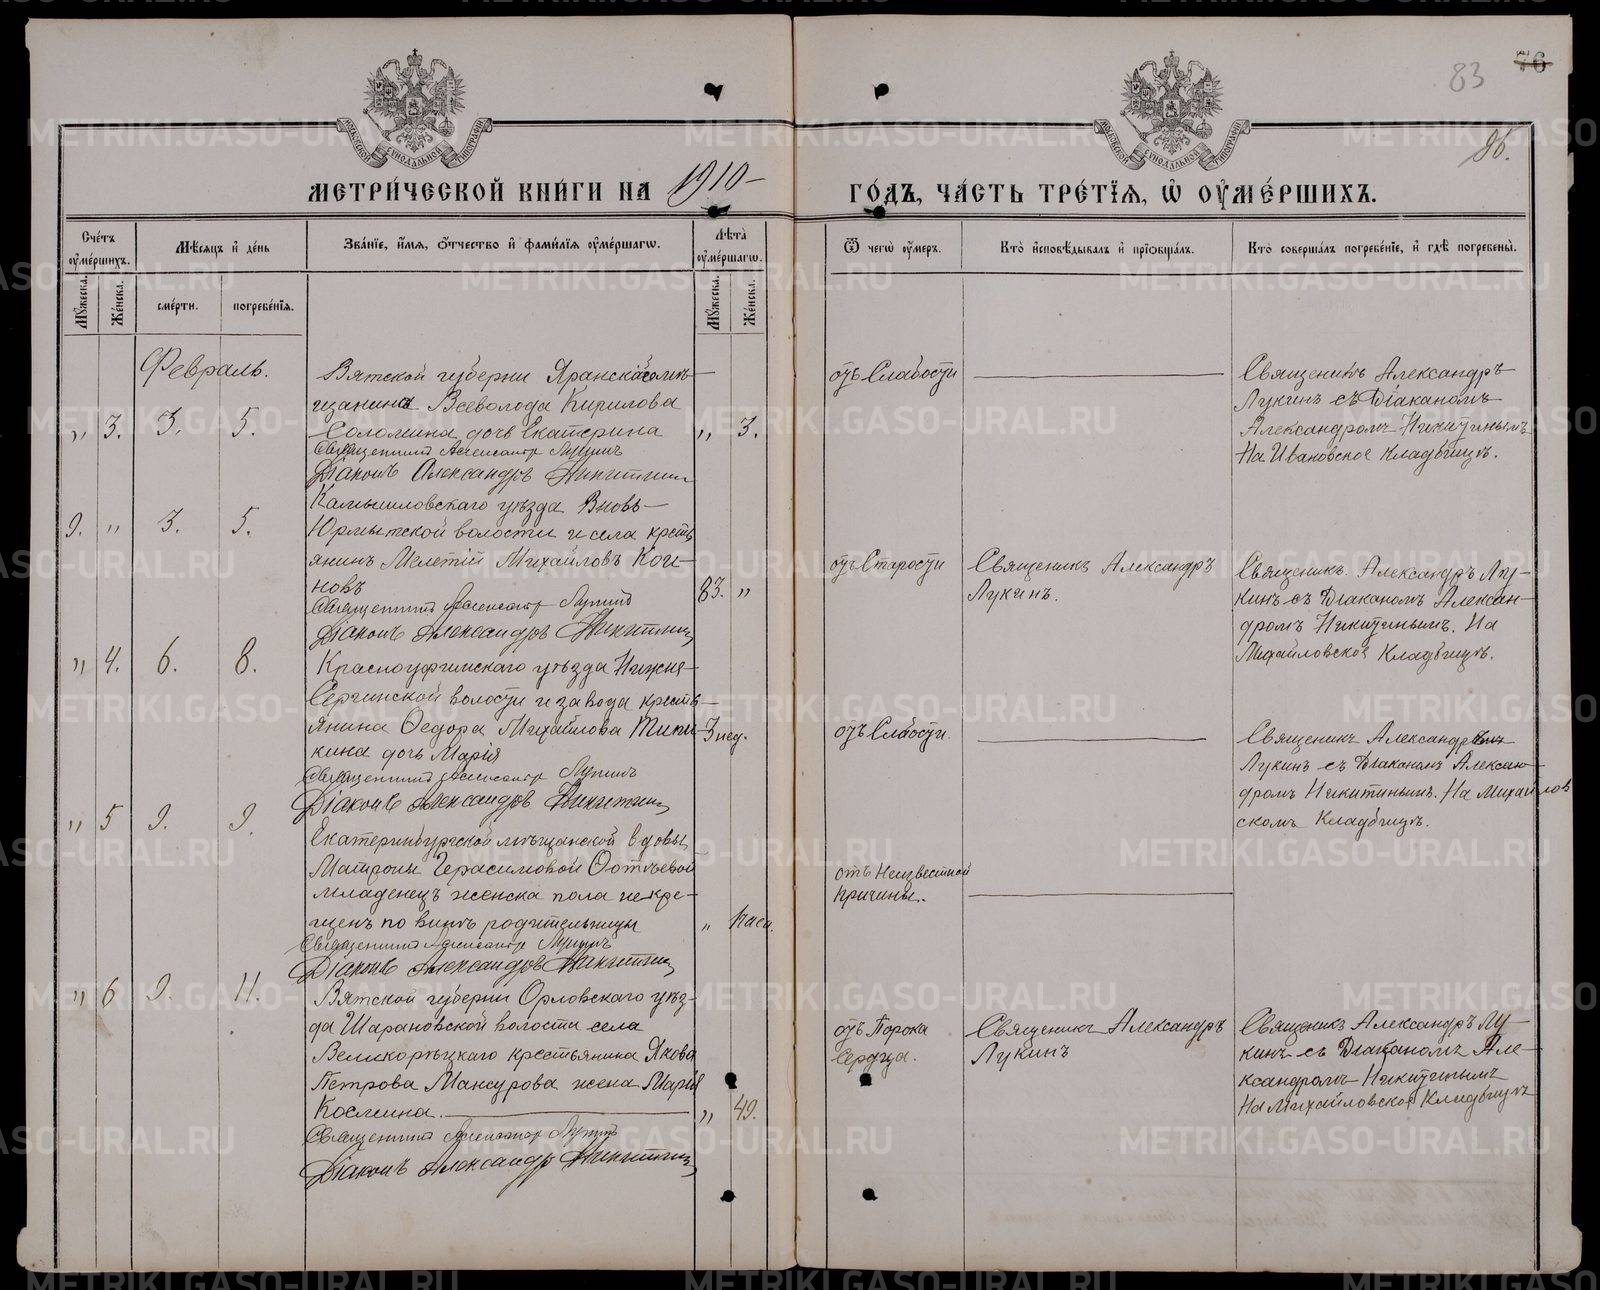 76
83
86.
МОСКОВСКОЙ СѴНОДАЛЬНОЙ ТИПОГРАФІИ
МОСКОВСКОЙ СѴНОДАЛЬНОЙ ТИПОГРАФІИ
МЕТРИ́ЧЕСКОЙ КНИ́ГИ НА 1910 –
ГО́ДЪ, ЧА́СТЬ ТРЕ́ТІѦ, Ѿ ОУ҆МЕ́РШИХЪ.
Сче́тъ оу҆ме́ршихъ.
Мꙋ́жеска.
Же́нска.
Мѣ́сѧцъ и҆ де́нь
сме́рти.
погребе́нїѧ.
Зва́нїе, и҆́мѧ, ѻ҆́тчество и҆ фами́лїѧ оу҆ме́ршагѡ.
Лѣ́та оу҆ме́ршагѡ.
Мꙋ́жеска.
Же́нска.
Ѿ чегѡ̀ оу҆́меръ.
Кто̀ и҆сповѣ́дывалъ и҆ прїѡбща́лъ.
Кто̀ соверша́лъ погребе́нїе, и҆ гдѣ̀ погребены̀.
Февраль.
„ 3. 3. 5.
Вятской губерніи Яранскаго мѣ-
щанина Всеволода Кирилова
Соломина дочь Екатерина
„ 3.
Священникъ Александръ Лукинъ
Діаконъ Александръ Никитинъ
отъ Слабости
Священикъ Александръ
Лукинъ съ Діакономъ
Александромъ Никитинымъ
На Ивановское кладбищѣ.
9. „ 3. 5.
Камышловскаго уѣзда Вновь-
Юрмытской волости и села кресть
янинъ Мелетій Михайловъ Коч-
новъ
83. „
Священникъ Александръ Лукинъ
Діаконъ Александръ Никитинъ
отъ Старости
Священикъ Александръ
Лукинъ.
Священикъ Александръ Лу-
кинъ съ Діаканомъ Алексан-
дромъ Никитинымъ. На
Михайловское Кладбищѣ.
„ 4. 6. 8.
Красноуфимскаго уѣзда Нижне-
Сергинской волости и завода кресть-
янина Ѳедора Михайлова Типи-
кина дочь Марія
3 нед.
Священникъ Александръ Лукинъ
Діаконъ Александръ Никитинъ
отъ Слабости
Священикъ Александръ
Лукинъ съ Діаканомъ Алексан-
дромъ Никитинымъ. На Михайлов
скомъ Кладбищѣ.
„ 5 9. 9.
Екатеринбургской мѣщанской вдовы
Матроны Герасимовой
младенецъ женска пола некре-
щенъ по винѣ родительницы
„ 1 часа.
Священникъ Александръ Лукинъ
Діаконъ Александръ Никитинъ
отъ Неизвестной
причины.
„ 6 9. 11.
Вятской губерніи Орловскаго уѣз-
да Шарановской волости села
Великорѣцкаго крестьянина Якова
Петрова Мансурова жена Марія
Космина.
„ 49.
Священникъ Александръ Лукинъ
Діаконъ Александръ Никитинъ
отъ Порока
Сердца.
Священикъ Александръ
Лукинъ
Священикъ Александръ Лу-
кинъ съ Діаканомъ Але-
ксандромъ Никитинымъ
На Михайловское Кладбищѣ
METRIKI.GASO-URAL.RU